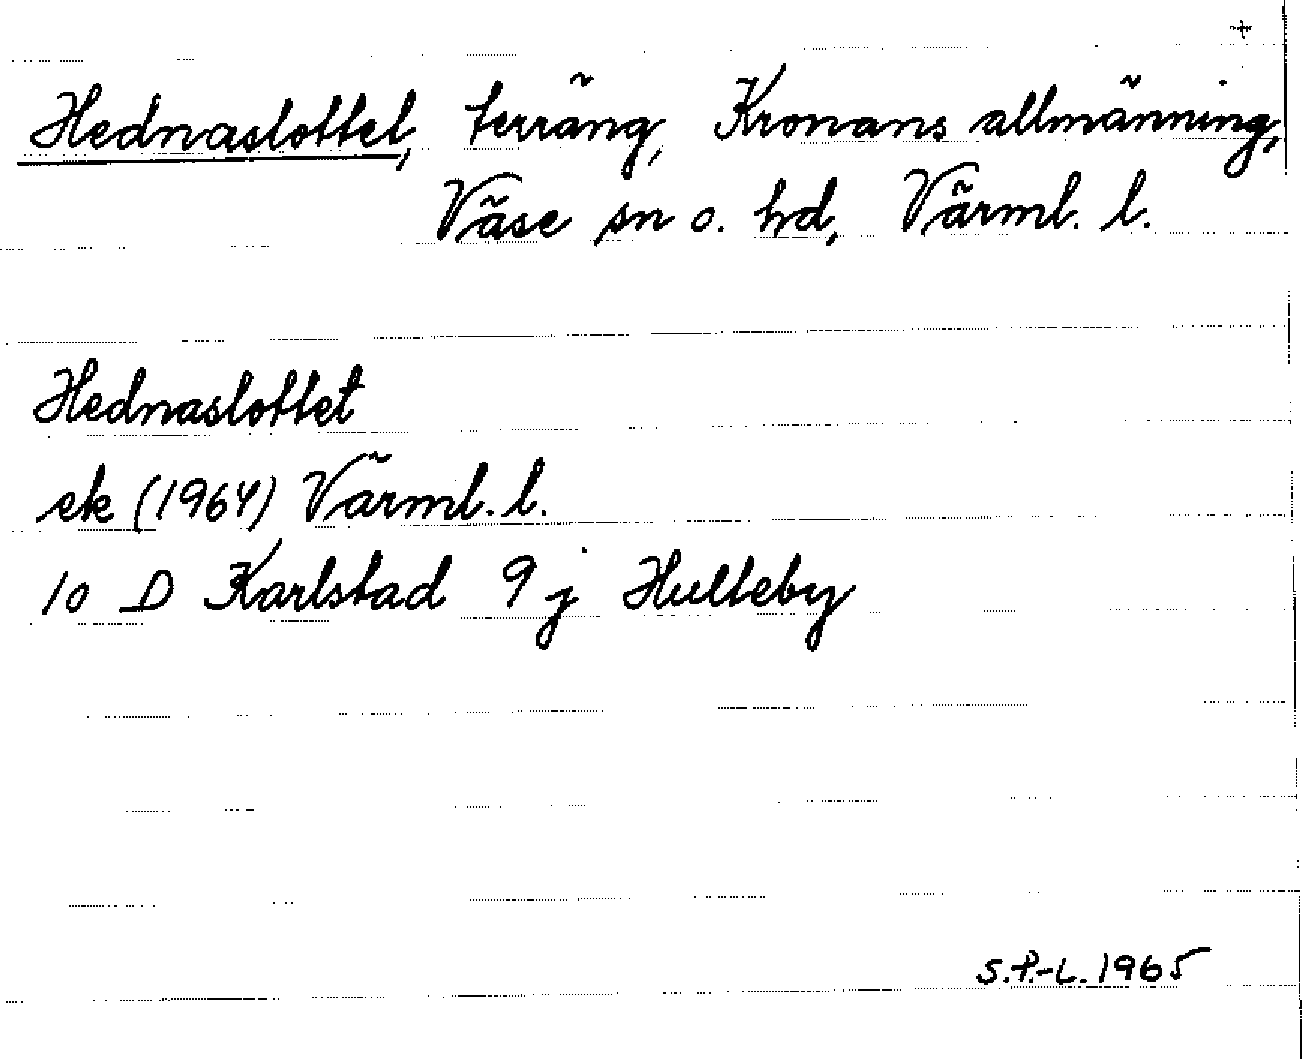 +
Hednaslottet, terräng, Kronans allmänning,
Väse sn o. hd, Värml. l.
Hednaslottet
ek (1964) Värml. l.
10 D Karlstad 9 j Hulteby
S.P.-L. 1965